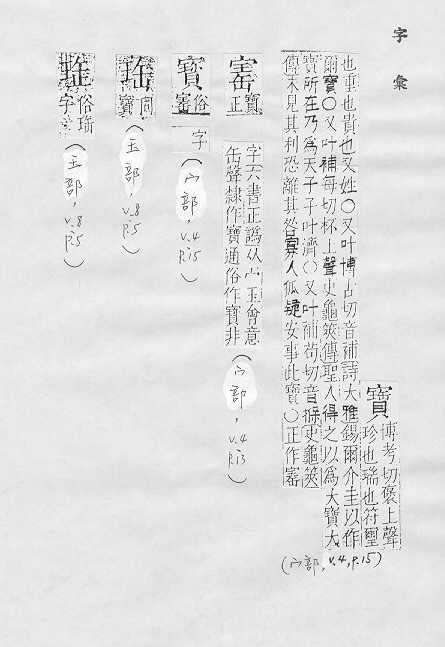 字彙
寶 博考切褒上聲
珍也瑞也符璽
也重也貴也又姓○又叶博古切音補詩大雅錫爾介圭以作
爾寶○又叶補每切杯上聲史龜筴傳聖人得之以爲大寶大
寶所在乃爲天子子叶濟○又叶補苟切音掊史龜筴
傳未見其利恐離其咎寡人狐疑安事此寶○正作寚
(宀部, v.4, p.15)
正寶
字六書正譌从宀玉會意
缶聲隸作寶通俗作寳非
(宀部, v.4 p.13)
俗
字
(宀部, v.4 p.15)
同寶
(玉部, v.8 p.5)
俗
字
(玉部, v.8 p.5)